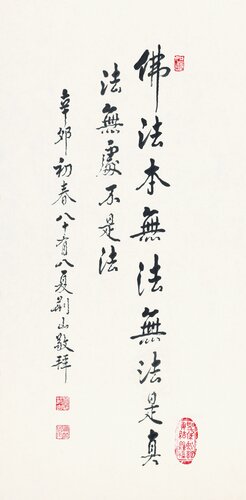 佛法本無法無法是真
法無處不是法
辛卯初春八十有八夏荆山敬拜